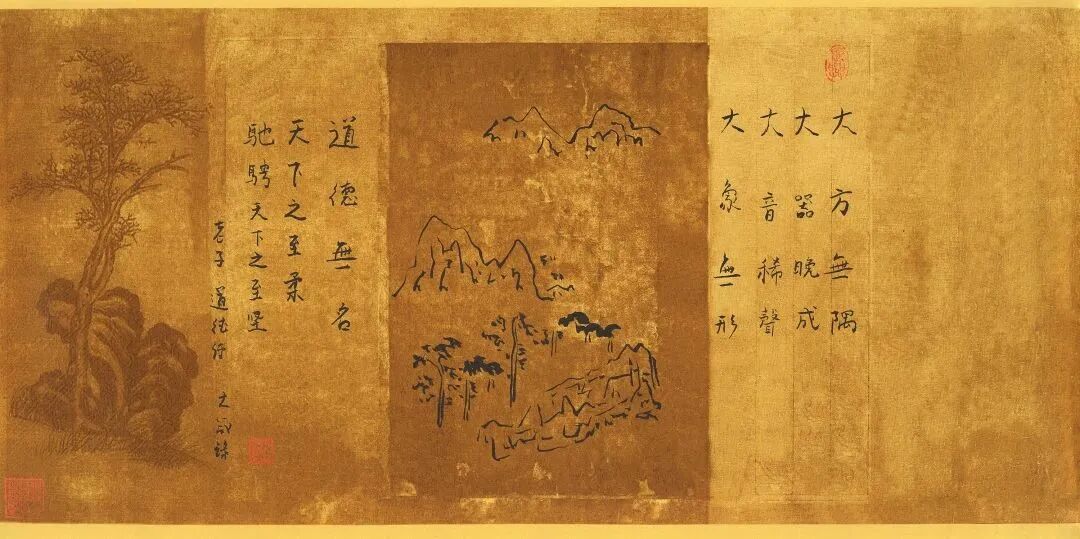 大方無隅
大器晚成
大音稀聲
大象無形
道德無名
天下之至柔
馳騁天下之至坚
老子道德经